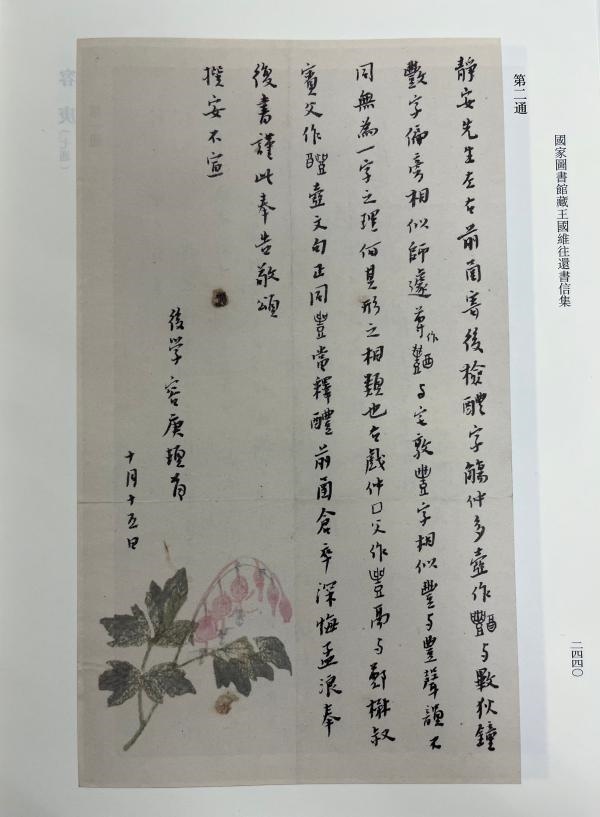 國家圖書館藏王國維往還書信集
二四四〇
第二通
靜安先生左右前函寄後檢醴字觴仲多壺作與斁狄鐘
斁字偏旁相似師遽尊作與宅敦豐字相似豐與豊聲韻不
同無為一字之理何其形之相類也右戲仲囗父作豊鬲與鄭楙叔
賓父作醴壺文句正同豊當釋醴前函倉卒深悔孟浪奉
復書謹此奉告敬頌
撰安不宣
後學容庚頓首
十月十五日
容庚（七通）